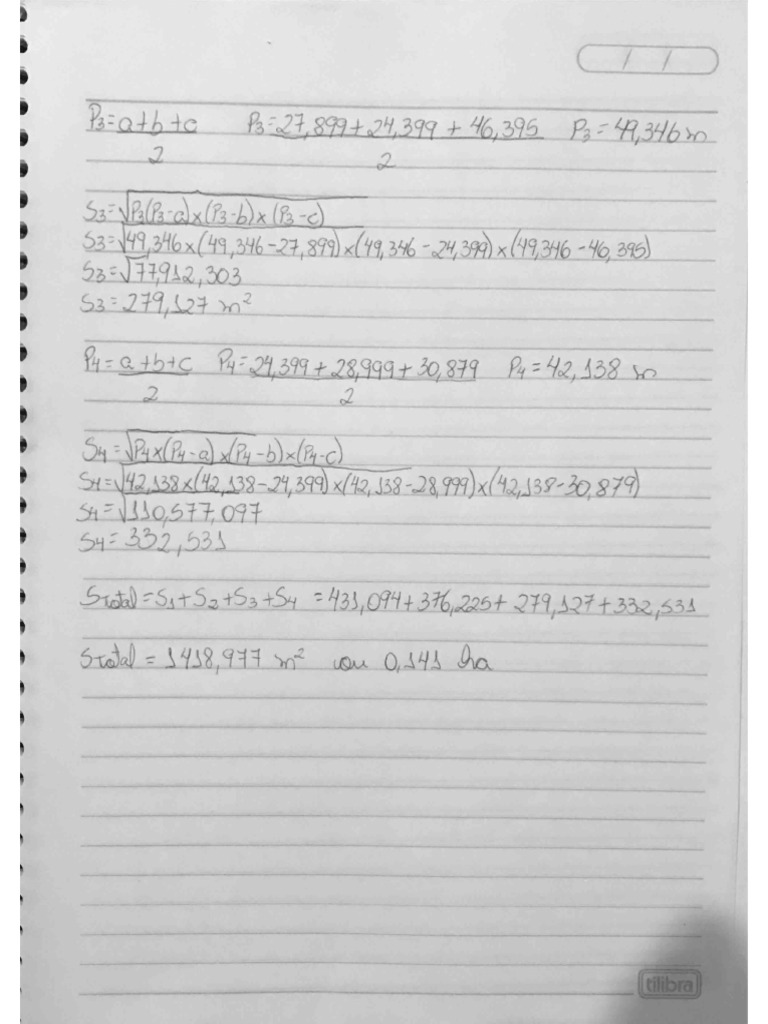 / /
P3 = a+b+c / 2 P3 = 27,899 + 24,399 + 46,395 / 2 P3 = 49,346 m
S3 = √P3(P3-a)×(P3-b)×(P3-c)
S3 = √49,346×(49,346-27,899)×(49,346-24,399)×(49,346-46,395)
S3 = √77,912,303
S3 = 279,127 m²
P4 = a+b+c / 2 P4 = 24,399 + 28,999 + 30,879 / 2 P4 = 42,138 m
S4 = √P4×(P4-a)×(P4-b)×(P4-c)
S4 = √42,138×(42,138-24,399)×(42,138-28,999)×(42,138-30,879)
S4 = √110,577,097
S4 = 332,531
Stotal = S1+S2+S3+S4 = 431,094+376,225+279,127+332,531
Stotal = 1418,977 m² ou 0,141 ha
tilibra